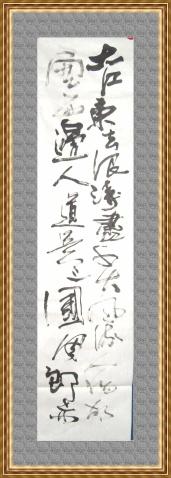 大江東去浪淘盡千古風流人物故
壘西邊人道是三國周郎赤